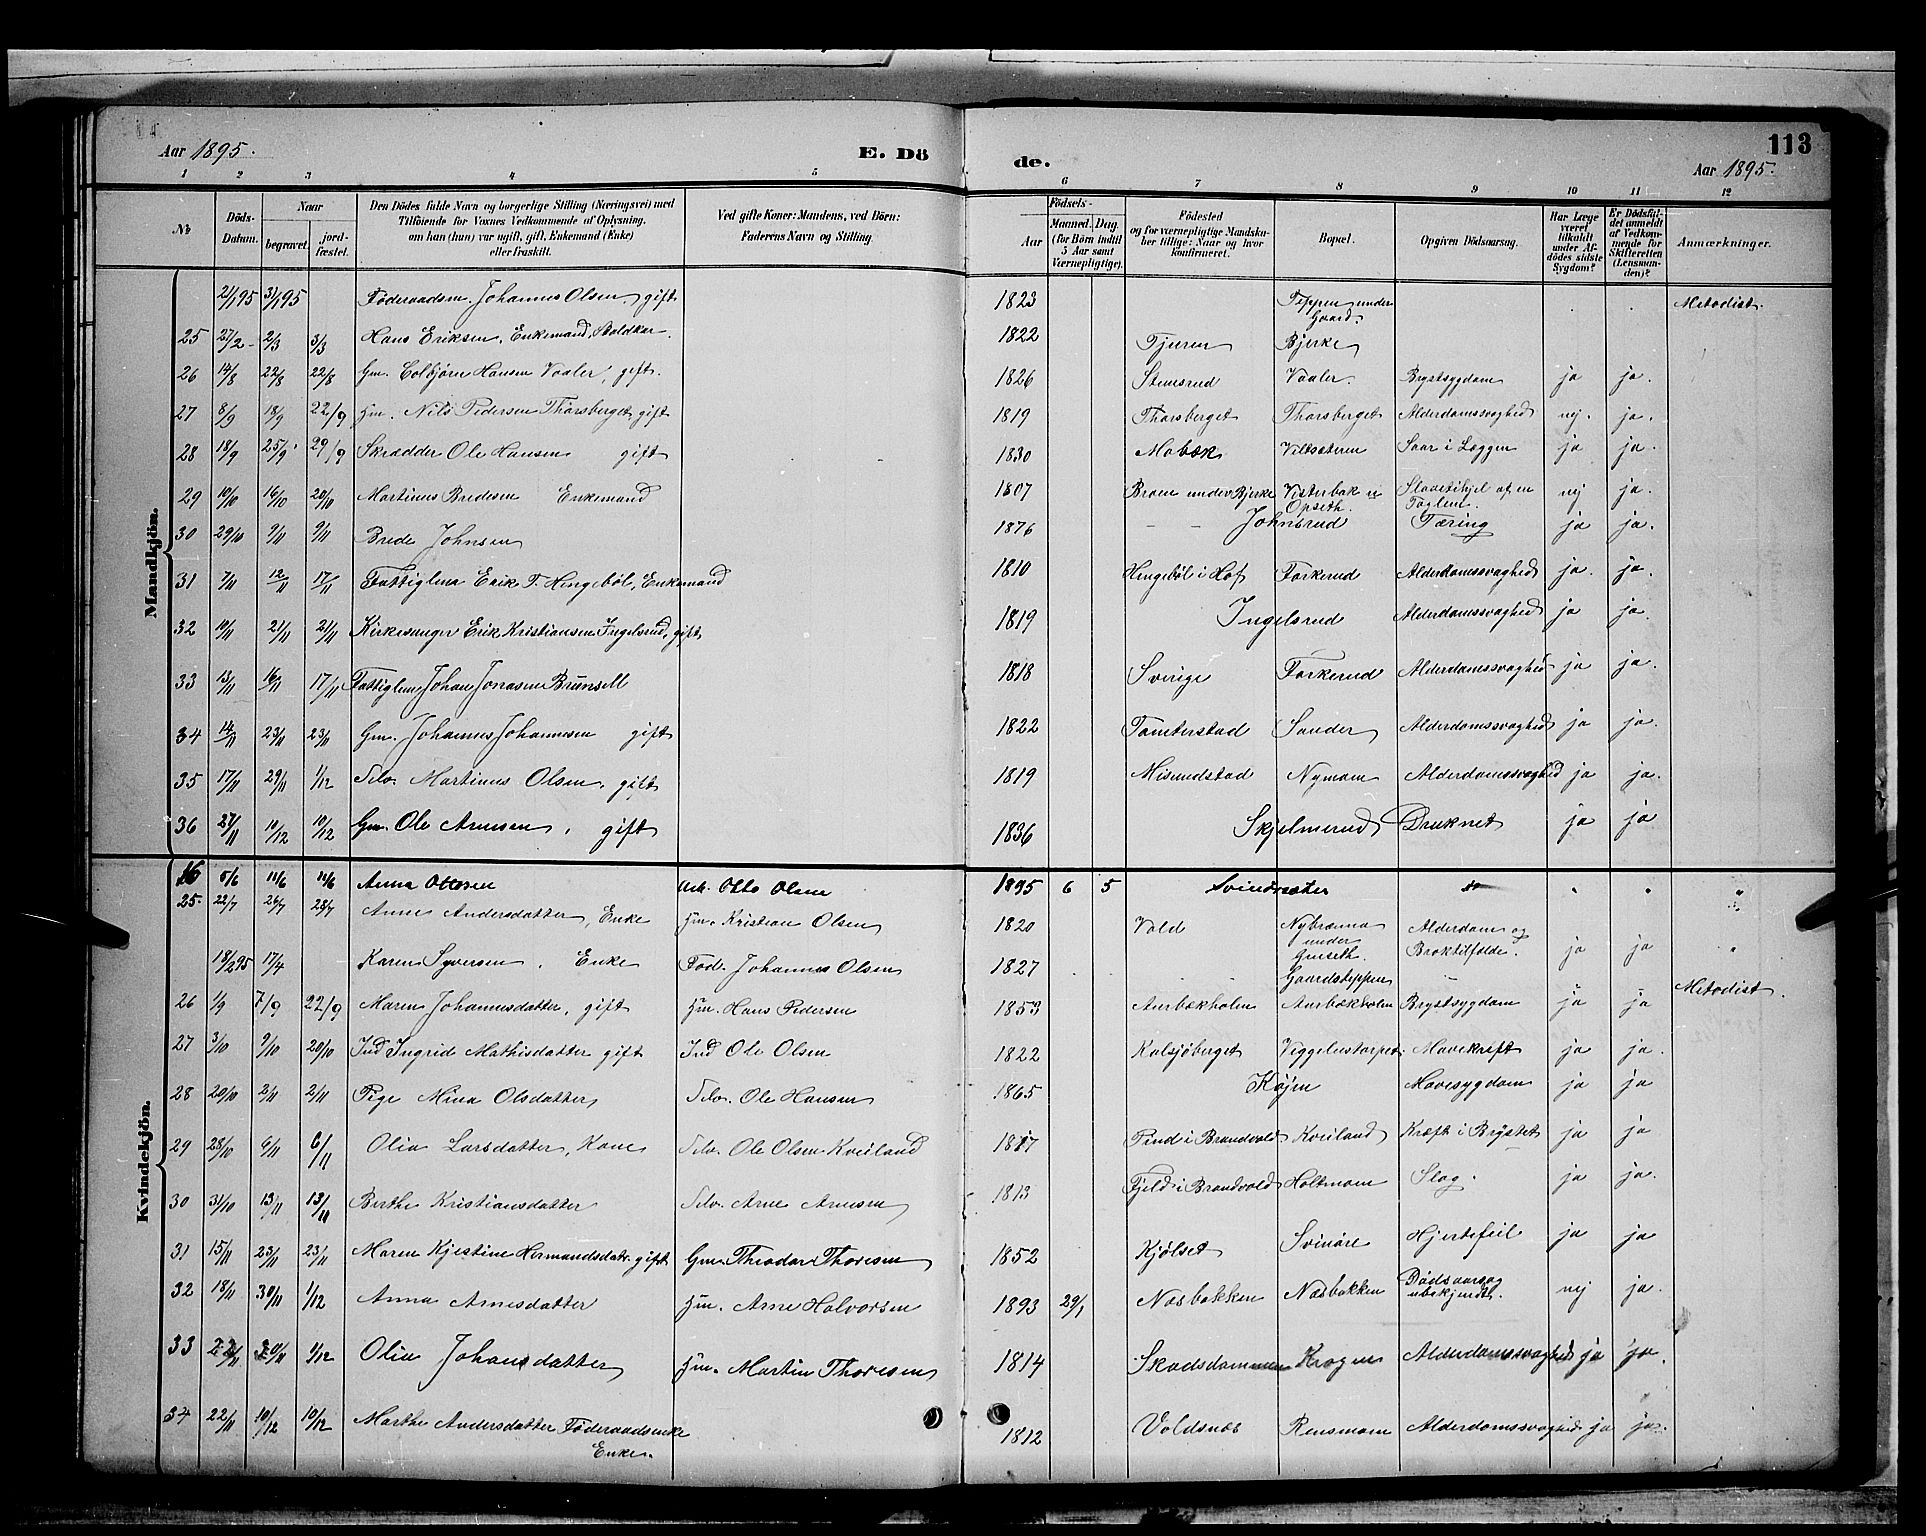 113
Aar 1895.
E. Dö
de.
Aar 1895.
1 2 3 4 5 6 7 8 9 10 11 12
№
Döds-Datum.
Naar
begravet.
jord-fæstet.
Den Dödes fulde Navn og borgerlige Stilling (Næringsvei) med
Tilföiende for Voxnes Vedkommende af Oplysning,
om han (hun) var ugift, gift, Enkemand (Enke)
eller fraskilt.
Ved gifte Koner: Mandens, ved Börn:
Faderens Navn og Stilling.
Födsels-
Aar
Maaned. Dag.
(for Börn indtil
5 Aar samt
Værnepligtige).
Födested
og for værnepligtige Mandska-
ber tillige: Naar og hvor
konfirmeret.
Bopæl.
Opgiven Dödsaarsag.
Har Læge
været
tilkaldt
under Af-
dödes sidste
Sygdom?
Er Dödsfal-
det anmeldt
af Vedkom-
mende for
Skifteretten
(Lensman-
den)?
Anmærkninger.
Mandkjön.
21/1 95 31/1 95 Föderaadsm. Johannes Olsen, gift 1823 Teppen under Gaard. Metodist.
25 27/2 2/3 3/3 Hans Eriksen, Enkemand, Soldkar. 1822 Tjuren Bjerke
26 14/8 22/8 22/8 Gm. Colbjørn Hansen Vaaler, gift. 1826 Stensrud Vaaler. Brystsygdom ja ja.
27 8/9 18/9 22/9 Hm. Nils Pedersen Thorsberget, gift 1819 Thorsberget Thorsberget Alderdomssvaghed nej. ja.
28 18/9 25/9 29/9 Skrædder Ole Hansen gift 1830 Mobæk Vilsæteren Saar i Læggen ja ja.
29 10/10 16/10 20/10 Martinus Bredesen Enkemand 1807 Broen under Bjerke Visterbak u Opseth. Slaaetihjel af en nej ja.
30 29/10 9/11 9/11 Brede Johnsen 1876 Johnsrud Tæring ja ja.
31 7/11 12/11 17/11 Fattiglem Erik T. Hengebøl, Enkemand 1810 Hengebøl i Hof Forkerud Alderdomssvaghed ja. ja.
32 10/11 21/11 21/11 Kirkesanger Erik Kristiansen Ingelsrud, gift 1819 Ingelsrud Alderdomssvaghed ja ja.
33 13/11 16/11 17/11 Fattiglem Johan Jonasen Brunsell 1818 Sverige Forkerud Alderdomssvaghed ja ja.
34 14/11 23/11 23/11 Gm. Johannes Johannesen gift 1822 Tomterstad Sander Alderdomssvaghed ja ja.
35 17/11 29/11 1/12 Selv. Martinus Olsen, gift 1819 Misundstad Nymoen Alderdomssvaghed ja ja.
36 27/11 10/12 10/12 Gm. Ole Arnesen, gift 1836 Skjelmerud Druknet ja ja
Kvindekjön.
16 5/6 11/6 11/6 Anna Ottosen Arb. Otto Olsen 1895 6 5 Svindsæter " "
25. 22/7 26/7 28/7 Anne Andersdatter, Enke Hm. Kristian Olsen 1820 Vold Nybraena under Guseth. Alderdom og Broktilfælde. ja ja
18/2 95 17/4 Karen Syversen, Enke Fod. Johannes Olsen 1827 Gaardsteppen Metodist.
26 1/9 7/9 22/9 Maren Johannesdatter, gift Hm. Hans Pedersen 1853 Aurbækholm Aurbækholm Brystsygdom ja ja
27 3/10 9/10 20/10 Ind Ingrid Mathisdatter gift Ind Ole Olsen 1822 Kalsjøberget Viggelustorpet. Mavekræft ja ja.
28 20/10 2/11 2/11 Pige Mina Olsdatter Selv. Ole Hansen 1865 Kojen Mavesygdom ja ja
29 28/10 6/11 6/11 Olia Larsdatter, Kone Selv. Ole Olsen Kveiland 1817 Pind i Brandvold Kveiland Kræft i Brystet ja ja
30 31/10 13/11 13/11 Berthe Kristiansdatter Selv. Arne Arnesen 1813 Fjeld i Brandvold Holtmoen Slag. ja ja.
31 15/11 23/11 23/11 Maren Kjestine Hermandsdatr. gift Gm. Theodor Thoresen 1852 Kjølset Svenøre Hjertefeil ja ja
32 18/11 30/11 1/12 Anna Arnesdatter Hm. Arne Halvorsen 1893 29/1 Næsbakken Næsbakken Dødsaarsag ubekjendt. nej ja.
33 22/11 30/11 1/12 Olia Johansdatter Hm. Martin Thoresen 1814 Skadsdammen Krogen Alderdomssvaghed ja ja.
34 22/11 10/12 10/12 Marthe Andersdatter Föderaadsenke Enke. 1812 Voldsnæs Rensmoen Alderdomssvaghed ja ja.